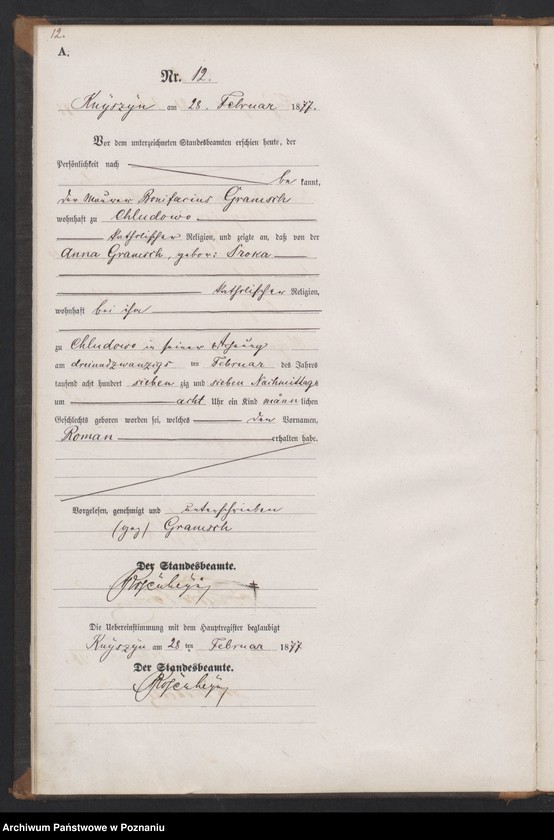 12.
A.
Nr. 12.
Knyszyn am 28. Februar 1877.
Vor dem unterzeichneten Standesbeamten erschien heute, der
Persönlichkeit nach
bekannt,
der Maurer Bonifacius Gramsch
wohnhaft zu Chludowo
katholischer Religion, und zeigte an, daß von der
Anna Gramsch, gebor: Sroka
katholischer Religion,
wohnhaft bei ihm
zu Chludowo in seiner Wohnung
am dreiundzwanzigsten Februar des Jahres
tausend acht hundert siebenzig und sieben Nachmittags
um acht Uhr ein Kind männlichen
Geschlechts geboren worden sei, welches den Vornamen,
Roman erhalten habe.
Vorgelesen, genehmigt und unterschrieben
(gez) Gramsch
Der Standesbeamte.
Die Uebereinstimmung mit dem Hauptregister beglaubigt
Knyszyn am 28 ten Februar 1877
Der Standesbeamte.
Archiwum Państwowe w Poznaniu